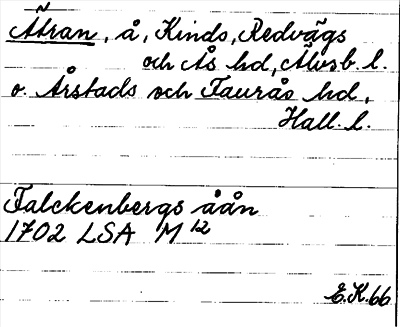 Ätran, å, Kinds, Redvägs
och Ås hd, Älvsb. l.
o. Årstads och Faurås hd,
Hall. l.
Falckenbergs åån
1702 LSA M 12
E.K.66